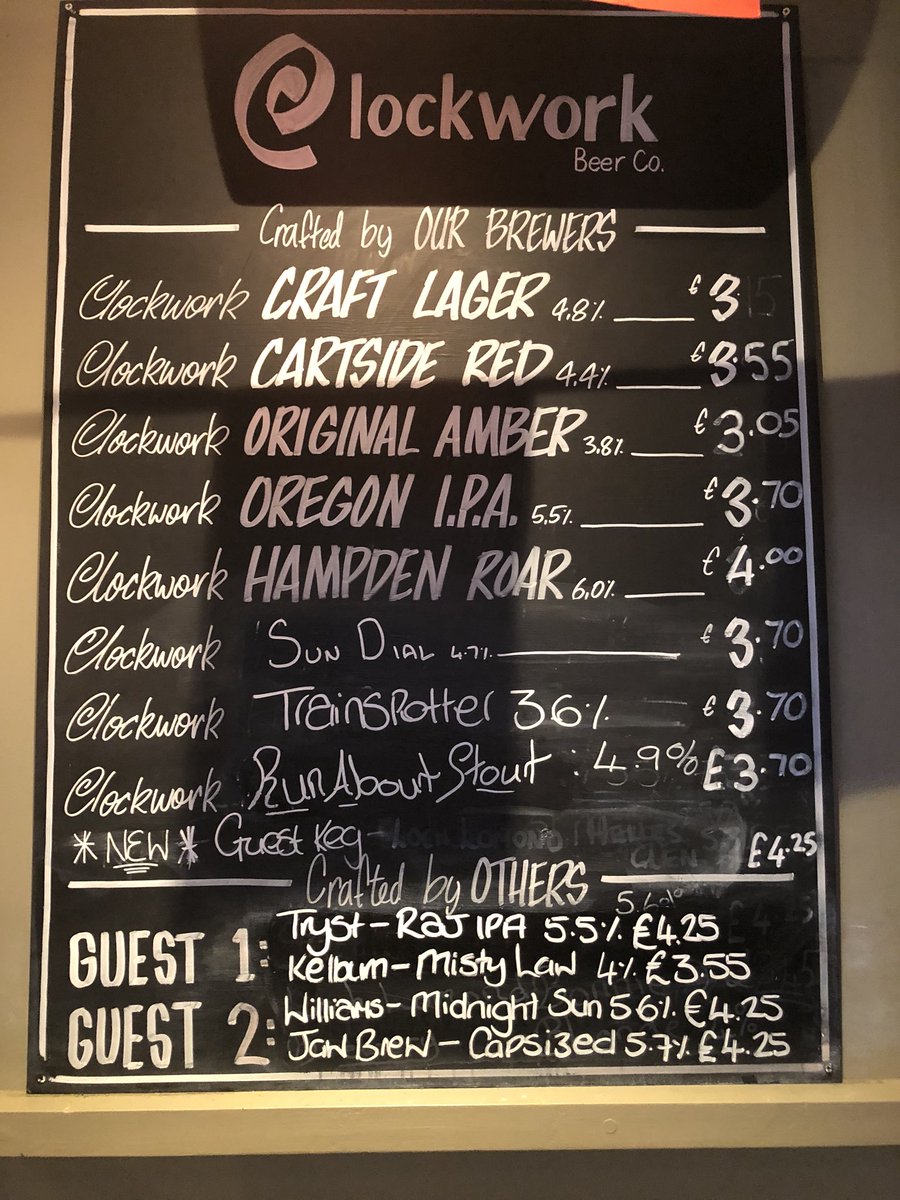 Clockwork
Beer Co.
Crafted by OUR BREWERS
Clockwork CRAFT LAGER 4.8% £3.15
Clockwork CARTSIDE RED 4.4% £3.55
Clockwork ORIGINAL AMBER 3.8% £3.05
Clockwork OREGON I.P.A. 5.5% £3.70
Clockwork HAMPDEN ROAR 6.0% £4.00
Clockwork SUN DIAL 4.7% £3.70
Clockwork TrainspOtter 3.6% £3.70
Clockwork RunAbout Stout : 4.9% £3.70
*NEW* Guest Keg - LOCH LOMOND £4.25
Crafted by OTHERS
GUEST 1: Tryst - RAJ IPA 5.5% £4.25
Kelburn - Misty Law 4% £3.55
GUEST 2: Williams - Midnight Sun 5.6% £4.25
Jaw Brew - Capsized 5.7% £4.25